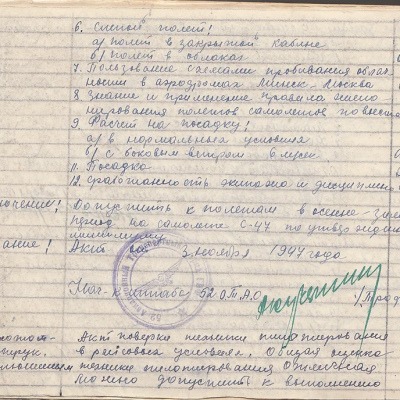 6. Слепой полет!
а) полет в закрытой кабине
б) полет в облаках
7. Пользование схемами пробивания облач
ности в аэродромах Минск-Москва
8. Знание и применение правила экено
мирования полетов самолетов по вместе
9. Расчет на посадку!
а) в нормальных условиях
б) с боковым ветром 6 м/сек
11. Посадка
12. Сработанность экипажа и дисциплина
лючении! Допустить к полетам в осенне-зим
период на самолете С-47 по утвержден
минимуму
ание! Акт от 3 ноября 1947 года
Нач-к штаба 52 О.Т.А.О.
Акт поверки техники пилотирования
в рейсовых условиях. Общая оценка
техники пилотирования Отличная
Можно допустить к выполнению